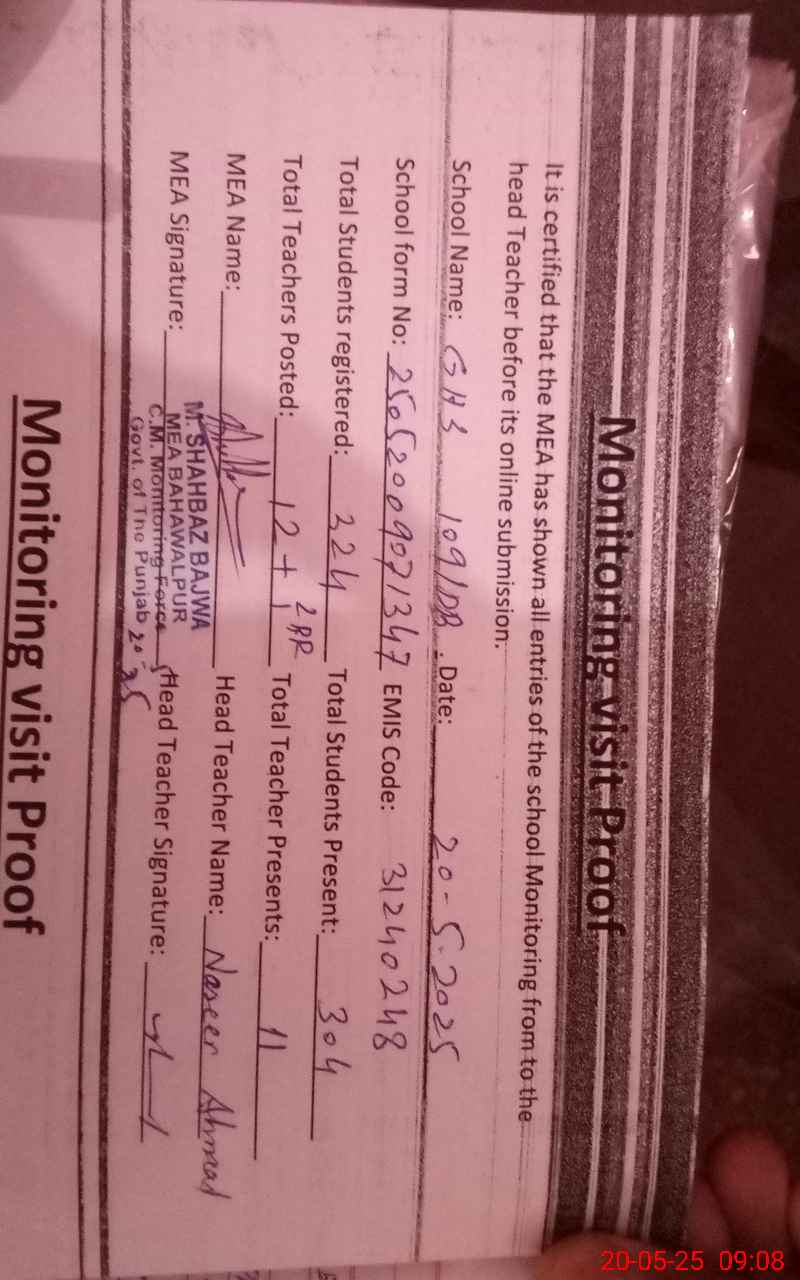 Monitoring visit Proof
It is certified that the MEA has shown all entries of the school Monitoring from to the
head Teacher before its online submission.
School Name: GHS 109/DB. Date: 20-5-2025
School form No: 25052009071347 EMIS Code: 31240248
Total Students registered: 324 Total Students Present: 304
2 RR
Total Teachers Posted: 12+1 Total Teacher Presents: 11
MEA Name: Head Teacher Name: Naseer Ahmad
M. SHAHBAZ BAJWA
MEA BAHAWALPUR
MEA Signature: Head Teacher Signature:
C.M. Monitoring Force
Govt. of The Punjab
Monitoring visit Proof
20-05-25 09:08